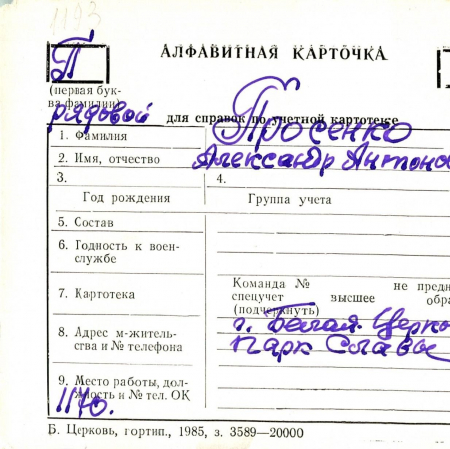 1193
П
АЛФАВИТНАЯ КАРТОЧКА
(первая бук-
ва фамилии)
рядовой
для справок по учетной картотеке
1. Фамилия Просенко
2. Имя, отчество Александр Антоно
3. 4.
Год рождения Группа учета
5. Состав
6. Годность к воен-
службе
Команда № не предн
7. Картотека спецучет высшее обра
(подчеркнуть)
г. Белая Церко
8. Адрес м-житель-
ства и № телефона Парк Славы
9. Место работы, дол-
жность и № тел. ОК
1170.
Б. Церковь, гортип., 1985, з. 3589—20000